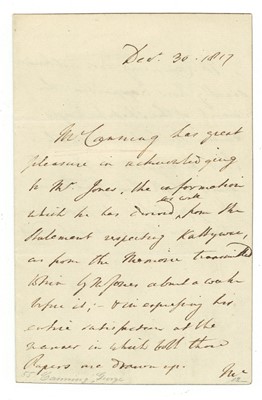 Dec. 30. 1817
Mr Canning has great
pleasure in acknowledging
to Mr. Jones, the information
as well
which he has derived, from the
Statement respecting Kattywar,
as from the Memoir transmitted
to him by Mr Jones about a week
before it; – & in expressing his
entire satisfaction at the
manner in which both those
Papers are drawn up.
Mr
Canning, George